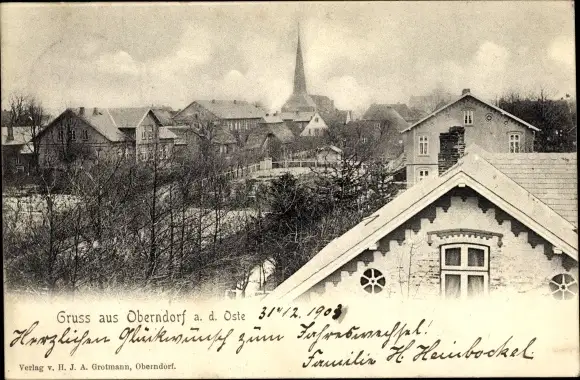 Gruss aus Oberndorf a. d. Oste
31/12. 1903
Herzlichen Glückwünsch zum Jahreswechsel!
Familie H. Heinbockel.
Verlag v. H. J. A. Grotmann, Oberndorf.